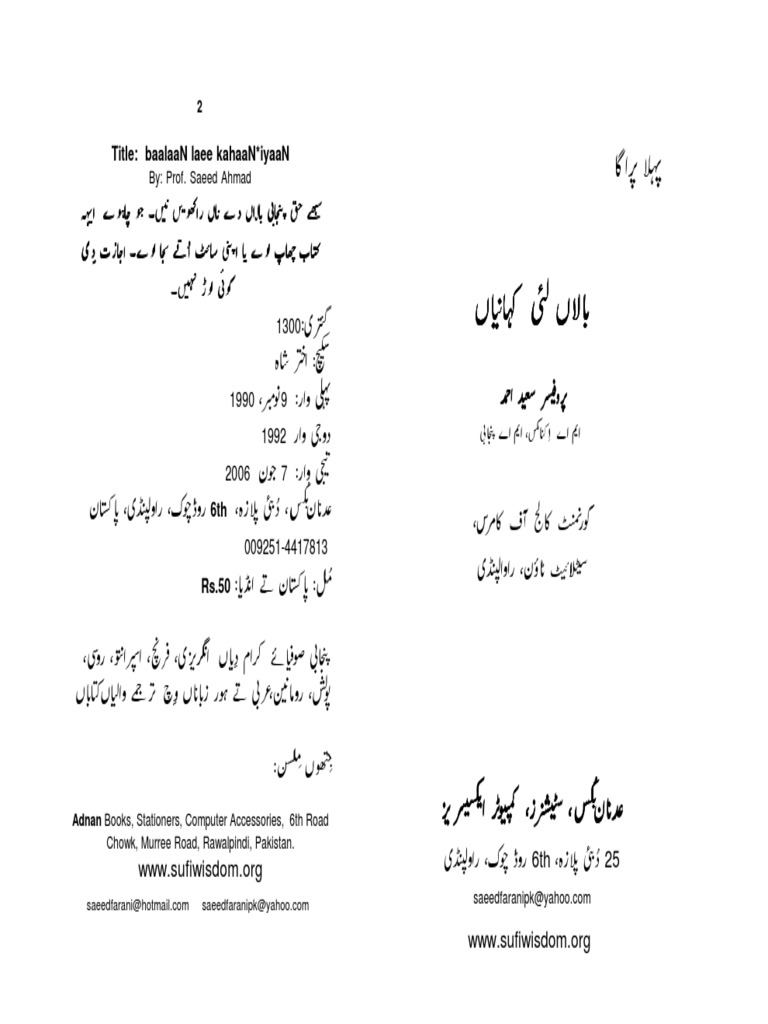 پہلا پراگا
بالاں لئی کہانیاں
پروفیسر سعید احمد
ایم اے اِکنامکس، ایم اے پنجابی
گورنمنٹ کالج آف کامرس،
سیٹلائیٹ ٹاؤن، راوالپنڈی
عدنان بُکس، سٹیشنرز، کمپیوٹر ایکسیسریز
25 دُبئی پلازہ، 6th روڈ چوک، راولپنڈی
saeedfaranipk@yahoo.com
www.sufiwisdom.org
2
Title: baalaaN laee kahaaN*iyaaN
By: Prof. Saeed Ahmad
سبھے حق پنجابی بالاں دے ناں راکھویں نیں۔ جو چاہوے ایہہ
کتاب چھاپ لوے یا اپنی سائٹ اُتے سجا لوے۔ اجازت دی
کوئی لوڑ نہیں۔
گنتری:1300
سکیچ: اختر شاہ
پہلی وار: 9نومبر، 1990
دوجی وار 1992
تیجی وار: 7 جون 2006
عدنان بُکس، دُبئی پلازہ، 6th روڈ چوک، راولپنڈی، پاکستان
009251-4417813
مُل: پاکستان تے انڈیا: Rs.50
پنجابی صوفیائے کرام دِیاں انگریزی، فرنچ، اسپرانتو، روسی،
پولش، رومانین،عربی تے ہور زباناں وِچ ترجمے والیاں کتاباں
جِتھوں مِلسن:
Adnan Books, Stationers, Computer Accessories, 6th Road
Chowk, Murree Road, Rawalpindi, Pakistan.
www.sufiwisdom.org
saeedfarani@hotmail.com saeedfaranipk@yahoo.com